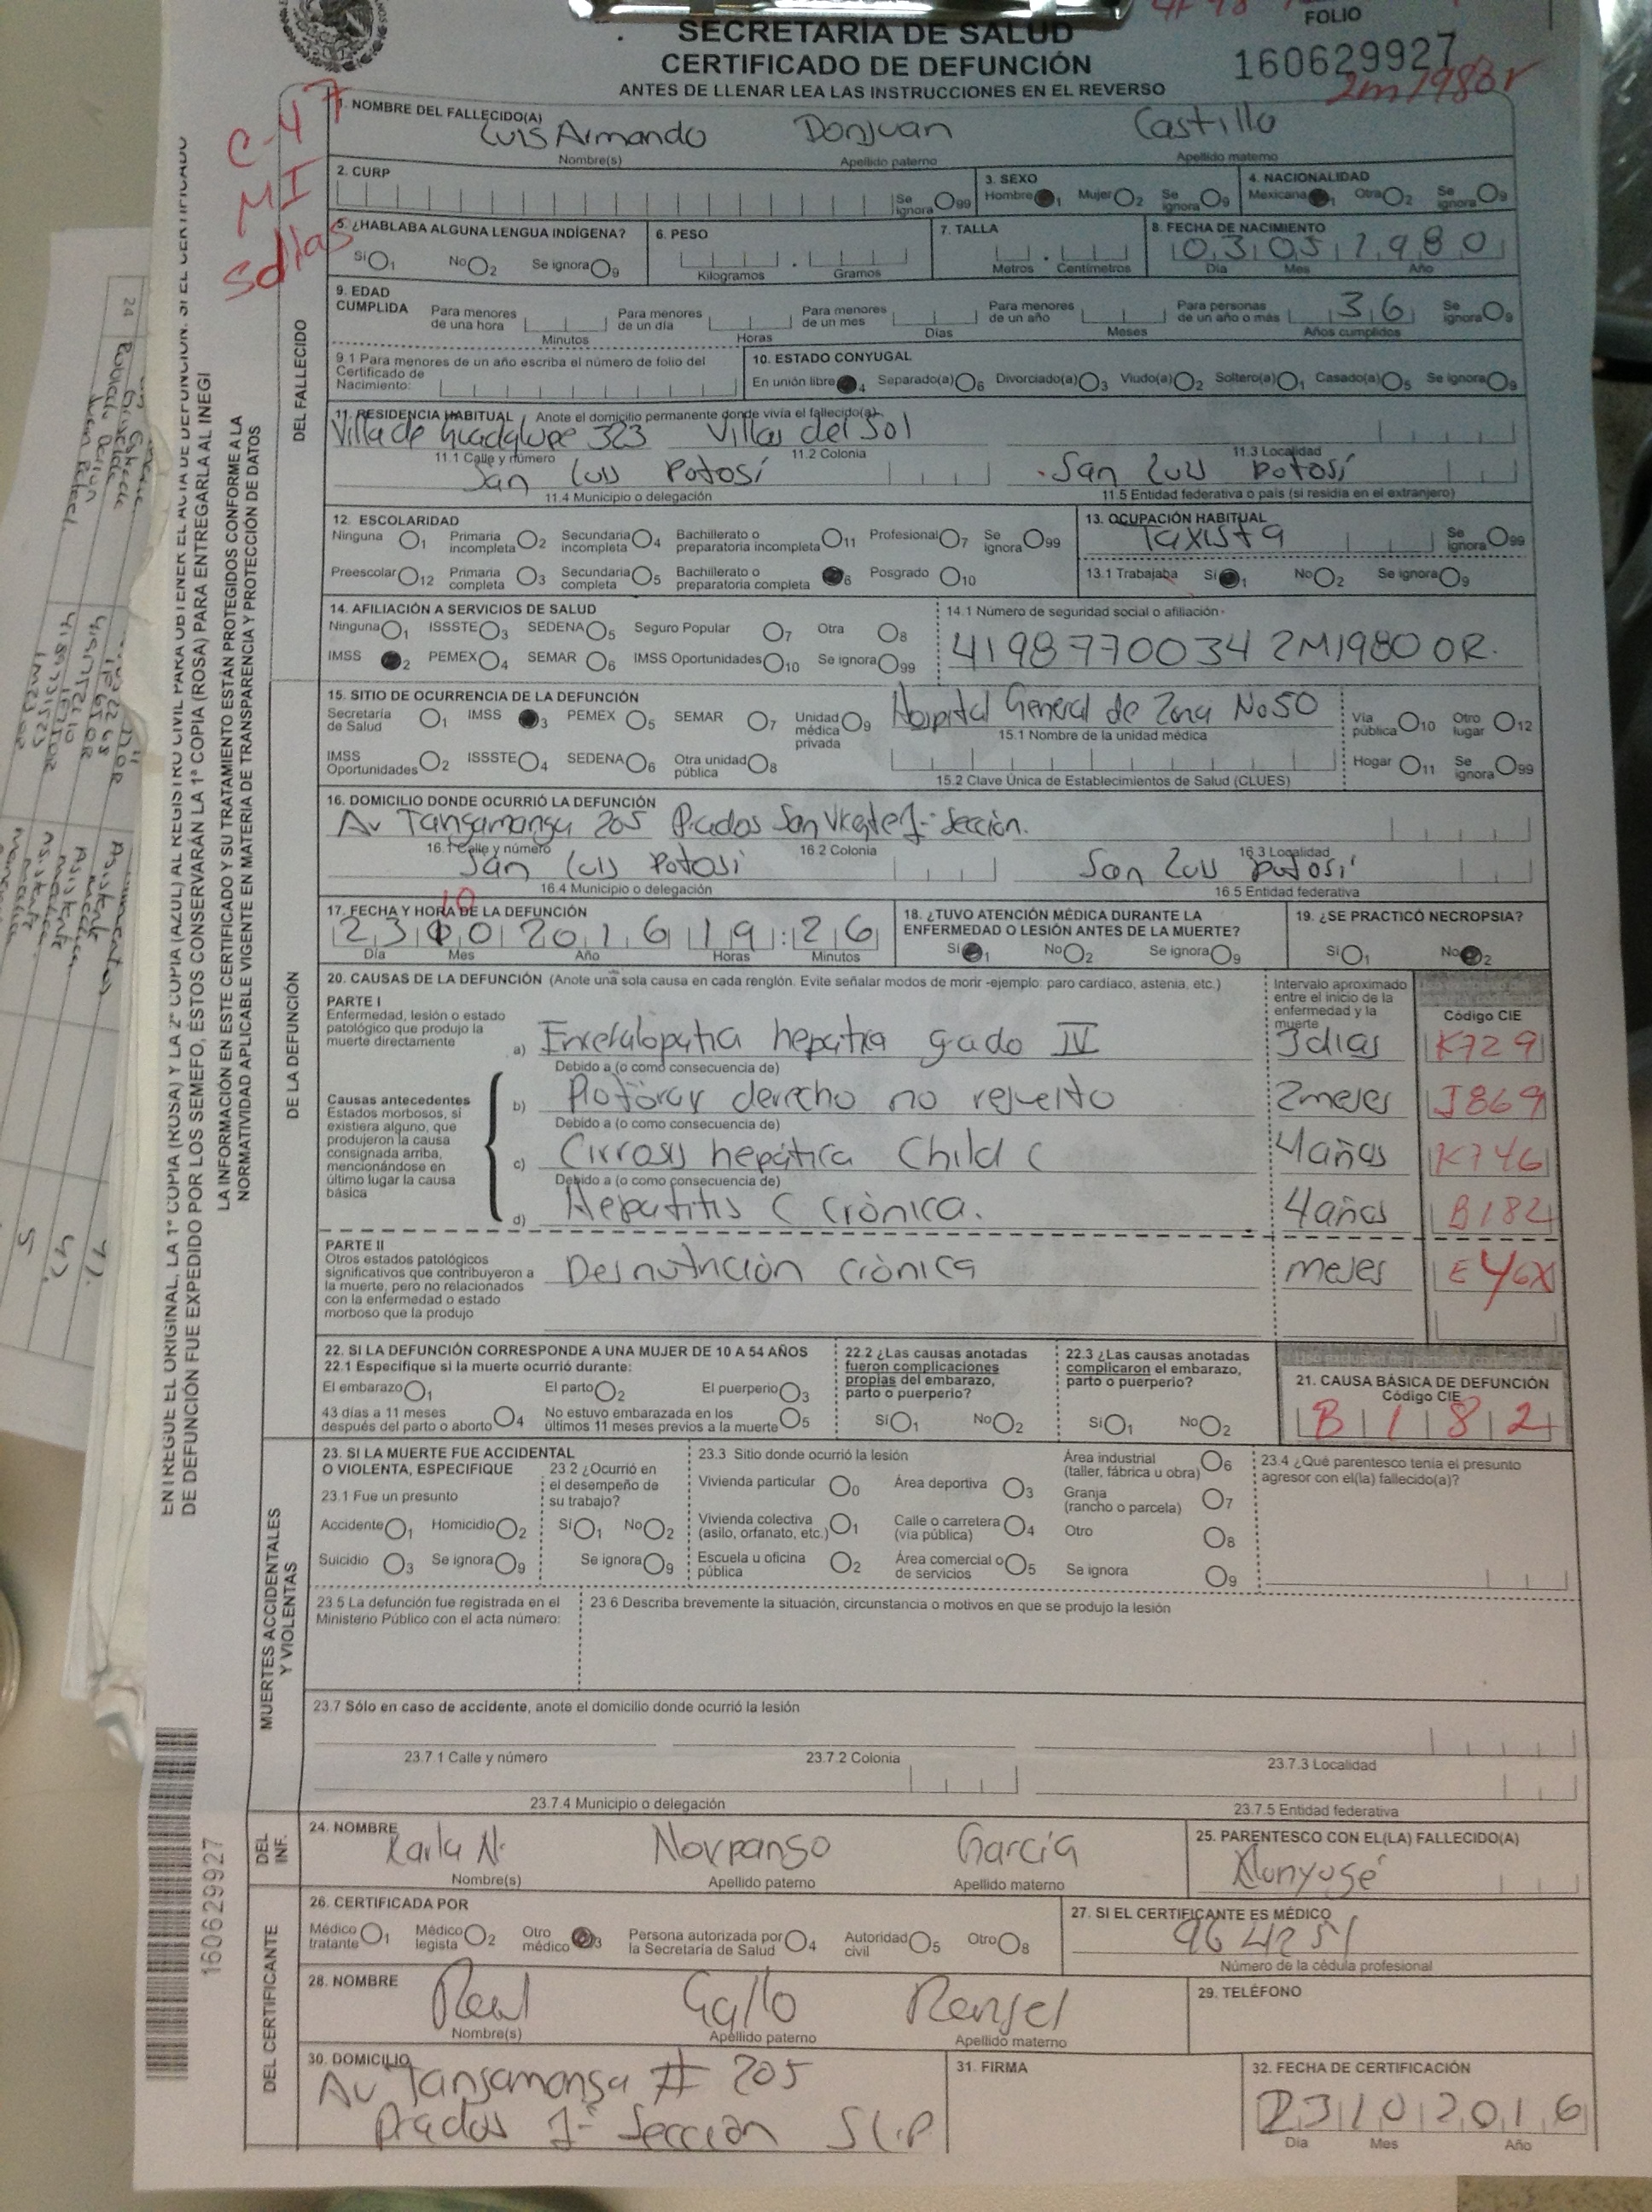 SECRETARÍA DE SALUD
CERTIFICADO DE DEFUNCIÓN
ANTES DE LLENAR LEA LAS INSTRUCCIONES EN EL REVERSO
FOLIO
160629927
2m1980r
C-47
MI
1. NOMBRE DEL FALLECIDO(A)
Luis Armando Donjuan Castillo
Nombre(s) Apellido paterno Apellido materno
2. CURP Se ignora 99
3. SEXO Hombre 1 Mujer 2 Se ignora 9
4. NACIONALIDAD Mexicana 1 Otra 2 Se ignora 9
5. ¿HABLABA ALGUNA LENGUA INDÍGENA? Sí 1 No 2 Se ignora 9
6. PESO Kilogramos . Gramos
7. TALLA Metros . Centímetros
8. FECHA DE NACIMIENTO 03 05 1980
Día Mes Año
9. EDAD CUMPLIDA
Para menores de una hora Minutos
Para menores de un día Horas
Para menores de un mes Días
Para menores de un año Meses
Para personas de un año o más 36 Años cumplidos Se ignora 9
9.1 Para menores de un año escriba el número de folio del Certificado de Nacimiento:
10. ESTADO CONYUGAL
En unión libre 4 Separado(a) 6 Divorciado(a) 3 Viudo(a) 2 Soltero(a) 1 Casado(a) 5 Se ignora 9
11. RESIDENCIA HABITUAL Anote el domicilio permanente donde vivía el fallecido(a).
Villa de Guadalupe 323 Villas del Sol
11.1 Calle y número 11.2 Colonia 11.3 Localidad
San Luis Potosí San Luis Potosí
11.4 Municipio o delegación 11.5 Entidad federativa o país (si residía en el extranjero)
12. ESCOLARIDAD
Ninguna 1 Primaria incompleta 2 Secundaria incompleta 4 Bachillerato o preparatoria incompleta 11 Profesional 7 Se ignora 99
Preescolar 12 Primaria completa 3 Secundaria completa 5 Bachillerato o preparatoria completa 6 Posgrado 10
13. OCUPACIÓN HABITUAL
Taxista Se ignora 99
13.1 Trabajaba Sí 1 No 2 Se ignora 9
14. AFILIACIÓN A SERVICIOS DE SALUD
Ninguna 1 ISSSTE 3 SEDENA 5 Seguro Popular 7 Otra 8
IMSS 2 PEMEX 4 SEMAR 6 IMSS Oportunidades 10 Se ignora 99
14.1 Número de seguridad social o afiliación
4198770034 2M1980 OR.
15. SITIO DE OCURRENCIA DE LA DEFUNCIÓN
Secretaría de Salud 1 IMSS 3 PEMEX 5 SEMAR 7 Unidad médica privada 9
IMSS Oportunidades 2 ISSSTE 4 SEDENA 6 Otra unidad pública 8
Hospital General de Zona No 50
15.1 Nombre de la unidad médica
15.2 Clave Única de Establecimientos de Salud (CLUES)
Vía pública 10 Otro lugar 12
Hogar 11 Se ignora 99
16. DOMICILIO DONDE OCURRIÓ LA DEFUNCIÓN
Av Tangamanga 205 Prados San Vicente 1ª Sección.
16.1 Calle y número 16.2 Colonia 16.3 Localidad
San Luis Potosí San Luis Potosí
16.4 Municipio o delegación 16.5 Entidad federativa
17. FECHA Y HORA DE LA DEFUNCIÓN
10
23 10 2016 19:26
Día Mes Año Horas Minutos
18. ¿TUVO ATENCIÓN MÉDICA DURANTE LA ENFERMEDAD O LESIÓN ANTES DE LA MUERTE?
Sí 1 No 2 Se ignora 9
19. ¿SE PRACTICÓ NECROPSIA?
Sí 1 No 2
20. CAUSAS DE LA DEFUNCIÓN (Anote una sola causa en cada renglón. Evite señalar modos de morir -ejemplo: paro cardíaco, astenia, etc.)
Intervalo aproximado entre el inicio de la enfermedad y la muerte
Código CIE
PARTE I
Enfermedad, lesión o estado patológico que produjo la muerte directamente
a) Encefalopatia hepática grado IV 3 dias K729
Debido a (o como consecuencia de)
Causas antecedentes
Estados morbosos, si existiera alguno, que produjeron la causa consignada arriba, mencionándose en último lugar la causa básica
b) Piotórax derecho no resuelto 2 meses J869
Debido a (o como consecuencia de)
c) Cirrosis hepática Child C 4 años K746
Debido a (o como consecuencia de)
d) Hepatitis C Crónica. 4 años B182
PARTE II
Otros estados patológicos significativos que contribuyeron a la muerte, pero no relacionados con la enfermedad o estado morboso que la produjo
Desnutrición crónica meses E46X
21. CAUSA BÁSICA DE DEFUNCIÓN
Código CIE
B182
22. SI LA DEFUNCIÓN CORRESPONDE A UNA MUJER DE 10 A 54 AÑOS
22.1 Especifique si la muerte ocurrió durante:
El embarazo 1 El parto 2 El puerperio 3
43 días a 11 meses después del parto o aborto 4 No estuvo embarazada en los últimos 11 meses previos a la muerte 5
22.2 ¿Las causas anotadas fueron complicaciones propias del embarazo, parto o puerperio?
Sí 1 No 2
22.3 ¿Las causas anotadas complicaron el embarazo, parto o puerperio?
Sí 1 No 2
23. SI LA MUERTE FUE ACCIDENTAL O VIOLENTA, ESPECIFIQUE
23.1 Fue un presunto
Accidente 1 Homicidio 2
Suicidio 3 Se ignora 9
23.2 ¿Ocurrió en el desempeño de su trabajo?
Sí 1 No 2
Se ignora 9
23.3 Sitio donde ocurrió la lesión
Vivienda particular 0 Área deportiva 3 Área industrial (taller, fábrica u obra) 6
Vivienda colectiva (asilo, orfanato, etc.) 1 Calle o carretera (vía pública) 4 Granja (rancho o parcela) 7
Otro 8
Escuela u oficina pública 2 Área comercial o de servicios 5 Se ignora 9
23.4 ¿Qué parentesco tenía el presunto agresor con el(la) fallecido(a)?
23.5 La defunción fue registrada en el Ministerio Público con el acta número:
23.6 Describa brevemente la situación, circunstancia o motivos en que se produjo la lesión
23.7 Sólo en caso de accidente, anote el domicilio donde ocurrió la lesión
23.7.1 Calle y número 23.7.2 Colonia 23.7.3 Localidad
23.7.4 Municipio o delegación 23.7.5 Entidad federativa
24. NOMBRE
Karla N. García
Nombre(s) Apellido paterno Apellido materno
25. PARENTESCO CON EL(LA) FALLECIDO(A)
26. CERTIFICADA POR
Médico tratante 1 Médico legista 2 Otro médico 3 Persona autorizada por la Secretaría de Salud 4 Autoridad civil 5 Otro 8
27. SI EL CERTIFICANTE ES MÉDICO
964251
Número de la cédula profesional
28. NOMBRE
Raul Gallo Rangel
Nombre(s) Apellido paterno Apellido materno
29. TELÉFONO
30. DOMICILIO
Av Tangamanga # 205
Prados 1ª Sección SLP
31. FIRMA
32. FECHA DE CERTIFICACIÓN
23 10 2016
Día Mes Año
DEL FALLECIDO
DE LA DEFUNCIÓN
MUERTES ACCIDENTALES Y VIOLENTAS
DEL INF.
DEL CERTIFICANTE
ENTREGUE EL ORIGINAL, LA 1ª COPIA (ROSA) Y LA 2ª COPIA (AZUL) AL REGISTRO CIVIL PARA OBTENER EL ACTA DE DEFUNCIÓN. SI EL CERTIFICADO
DE DEFUNCIÓN FUE EXPEDIDO POR LOS SEMEFO, ÉSTOS CONSERVARÁN LA 1ª COPIA (ROSA) PARA ENTREGARLA AL INEGI
LA INFORMACIÓN EN ESTE CERTIFICADO Y SU TRATAMIENTO ESTÁN PROTEGIDOS CONFORME A LA
NORMATIVIDAD APLICABLE VIGENTE EN MATERIA DE TRANSPARENCIA Y PROTECCIÓN DE DATOS
160629927